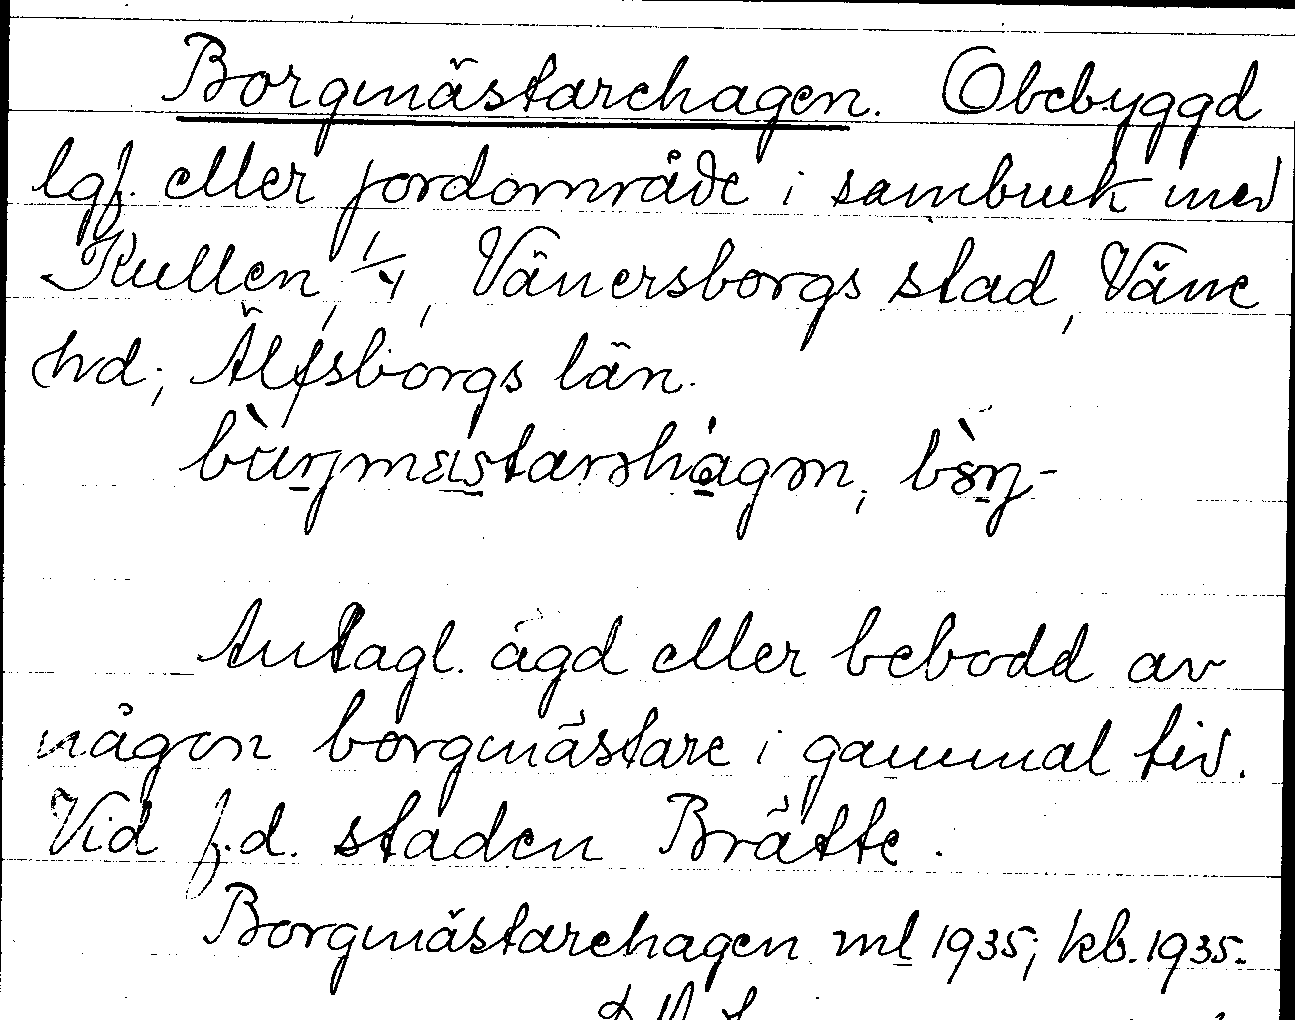 Borgmästarehagen. Obebyggd
lgf. eller jordområde i sambruk med
Kullen, 1/4, Vänersborgs stad, Väne
hd; Älfsborgs län.
Antagl. ägd eller bebodd av
någon borgmästare i gammal tid.
Vid f.d. staden Brätte.
Borgmästarehagen ml 1935; kb. 1935.